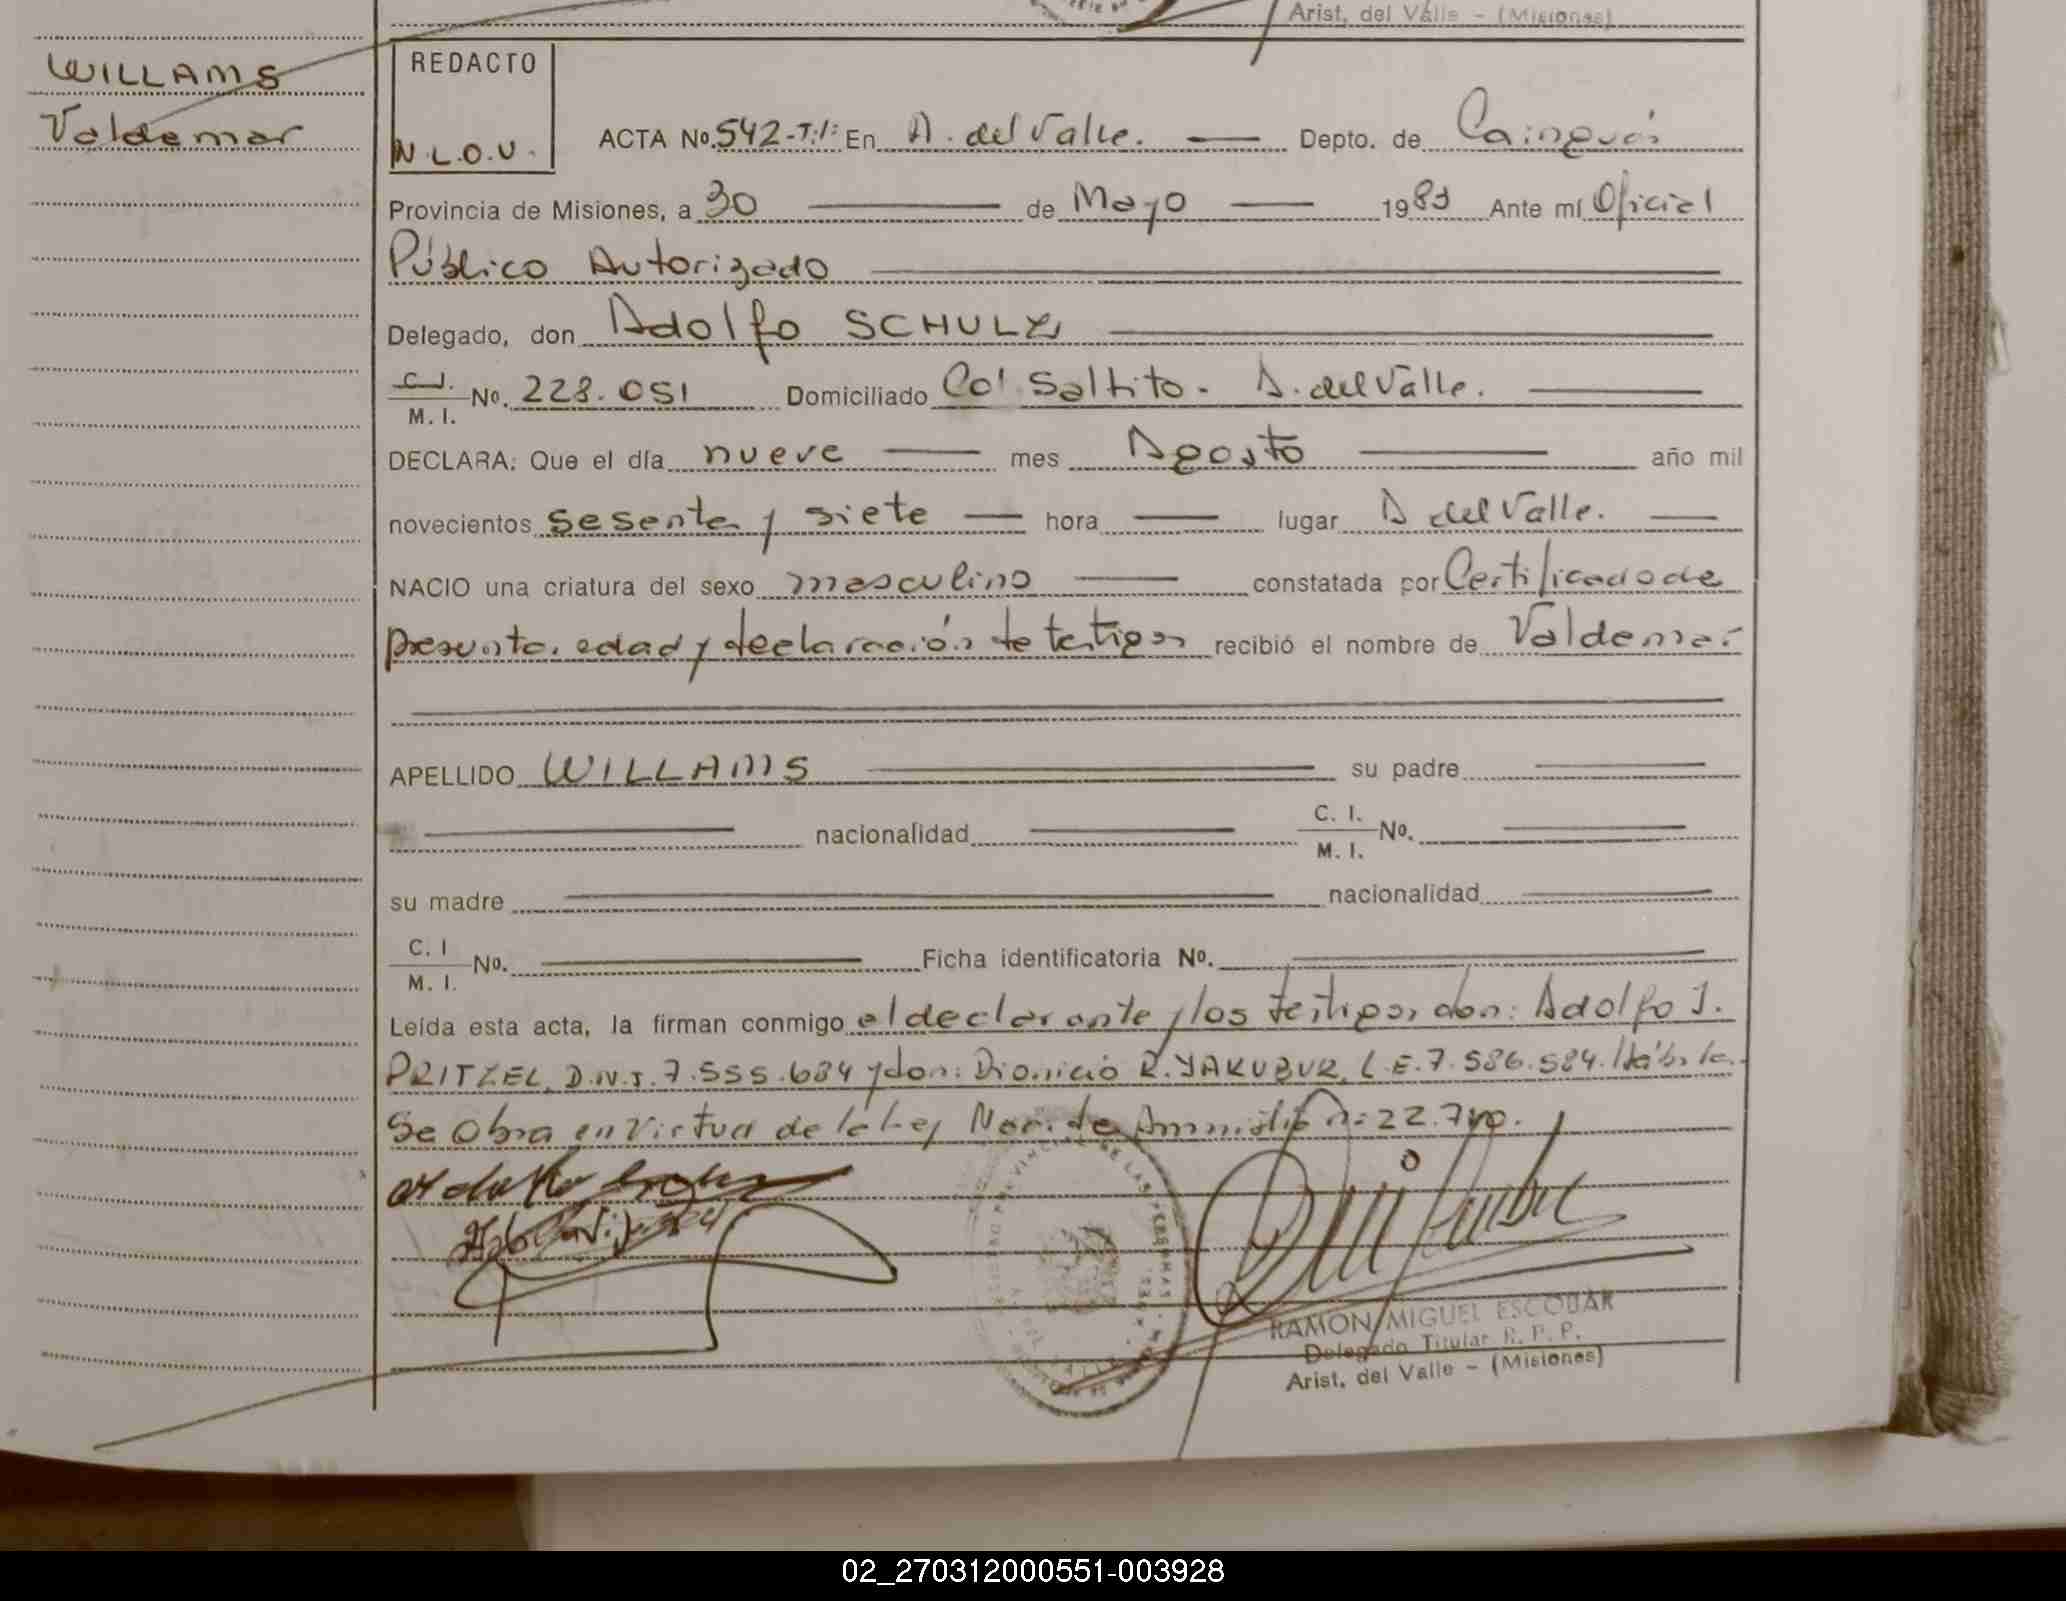 Arist. del Valle - (Misiones)
WILLAMS
Valdemar
REDACTO
N.L.O.V.
ACTA No. 542-T.I: En A. del Valle. Depto. de Cainguás
Provincia de Misiones, a 30 de Mayo 1983 Ante mí Oficial
Público Autorizado
Delegado, don Adolfo SCHULZ
C.I. M.I. No. 228.051 Domiciliado Col. Saltito - A. del Valle.
DECLARA: Que el día nueve mes Agosto año mil
novecientos sesenta y siete hora lugar A del Valle.
NACIO una criatura del sexo masculino constatada por Certificado de
presunta edad y declaración de testigos recibió el nombre de Valdemar
APELLIDO WILLAMS su padre
nacionalidad C. I. M. I. No.
su madre nacionalidad
C. I M. I. No. Ficha identificatoria No.
Leída esta acta, la firman conmigo el declarante y los testigos, don: Adolfo I.
PRITZEL, D.N.I. 7.555.684 y don: Dionicio R. YAKUBUR, L.E. 7.586.584. Hábiles.
Se Obra en Virtud de la Ley Nac. de Amnistía n: 22.740.
RAMON MIGUEL ESCOBAR
Delegado Titular R. P. P.
Arist. del Valle - (Misiones)
02_270312000551-003928